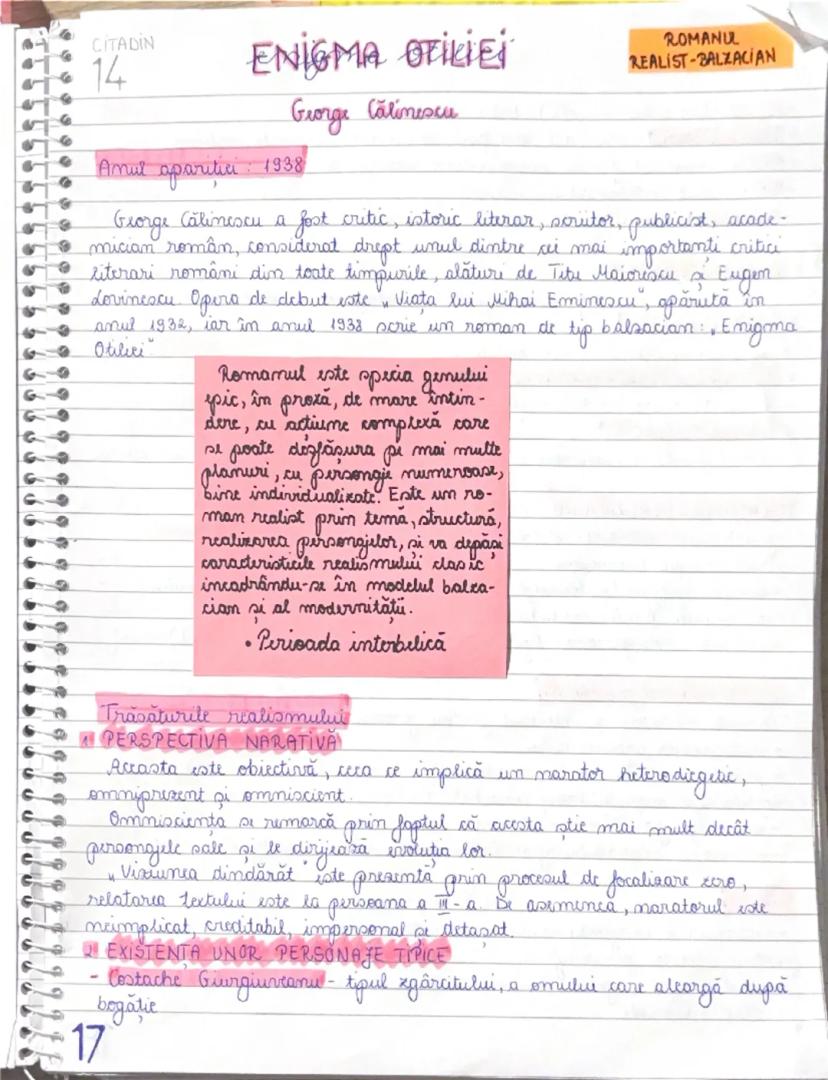 CITADIN
14
ENIGMA OTILIEI
ROMANUL
REALIST-BALZACIAN
George Călinescu
Anul apariției : 1938
George Călinescu a fost critic, istoric literar, scriitor, publicist, acade-
mician român, considerat drept unul dintre cei mai importanți critici
literari români din toate timpurile, alături de Titu Maiorescu și Eugen
Lovinescu. Opera de debut este „Viața lui Mihai Eminescu", apărută în
anul 1932, iar în anul 1938 scrie un roman de tip balzacian: „Enigma
Otiliei"
Romanul este specia genului
epic, în proză, de mare întin-
dere, cu acțiune complexă care
se poate desfășura pe mai multe
planuri, cu personaje numeroase,
bine individualizate. Este un ro-
man realist prin temă, structură,
realizarea personajelor, și va depăși
caracteristicile realismului clasic
încadrându-se în modelul balza-
cian și al modernității.
• Perioada interbelică
Trăsăturile realismului
1 PERSPECTIVA NARATIVĂ
Aceasta este obiectivă, ceea ce implică un narator heterodiegetic,
omniprezent și omniscient.
Omnisciența se remarcă prin faptul că acesta știe mai mult decât
personajele sale și le dirijează evoluția lor.
„Viziunea dindărăt" este prezentă prin procesul de focalizare zero,
relatarea textului este la persoana a III-a. De asemenea, naratorul este
neimplicat, creditabil, impersonal și detașat.
2 EXISTENȚA UNOR PERSONAJE TIPICE
- Costache Giurgiuveanu - tipul zgârcitului, a omului care aleargă după
bogăție
17